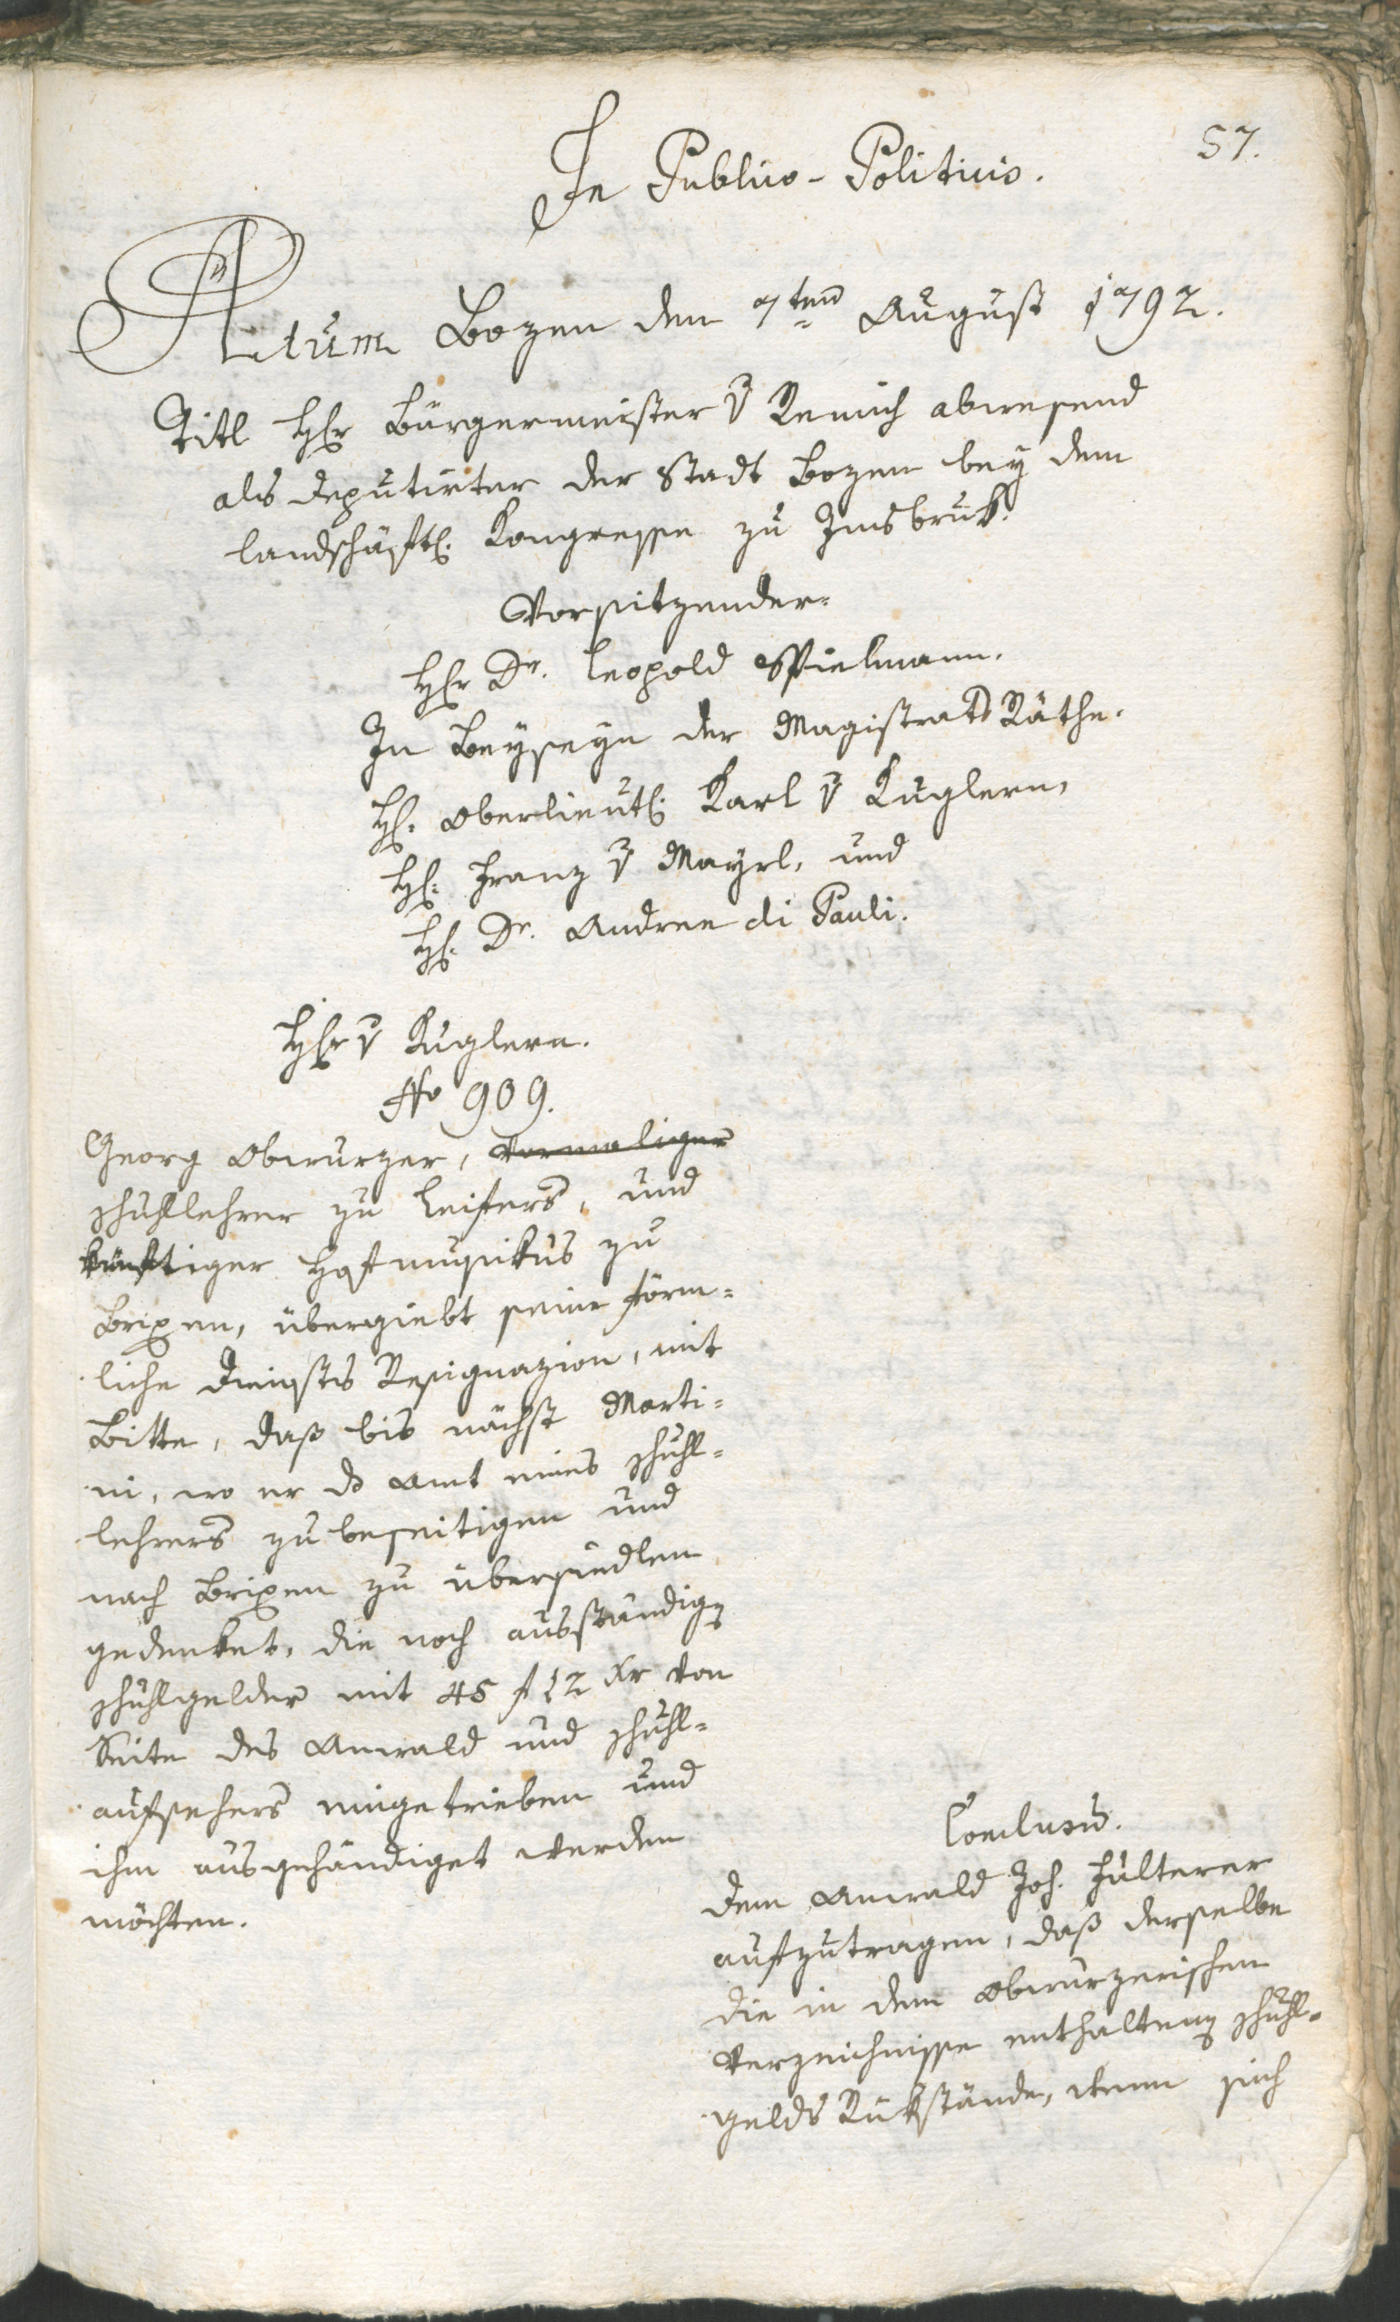 57.
In Publico-Politicis.
Actum Bozen den 7ten August 1792.
Titl Hr Bürgermeister v Remich abwesend
als Deputirter der Stadt Bozen bey dem
landschäftl. Kongresse zu Innsbruk.
Vorsitzender.
Hr Dr. Leopold Spielmann.
In Beyseyn der Magistrats Räthe.
H. Oberlieut. Karl v Kuglern,
H. Franz v Mayrl, und
H. Dr. Andree di Pauli.
Hr v Kuglern.
No 909.
Georg Obwurzer, vormaliger
Schullehrer zu Leifers, und
künftiger Hofmusikus zu
Brixen, übergiebt seine förm-
liche Dienstes Resignazion, mit
Bitte, daß bis nächst Marti-
ni, wo er ds Amt eines Schull-
lehrers zu beseitigen und
nach Brixen zu übersiedlen
gedenket, die noch ausständigen
Schullgelder mit 45 f 12 Xr von
Seite des Anwald und Schull-
aufsehers eingetrieben und
ihm ausgehändiget werden
möchten.
Conclusum.
Dem Anwald Joh. Fulterer
aufzutragen, daß derselbe
die in dem Obwurzerischen
Verzeichnisse enthaltenen Schull-
gelds Rükstände, wenn sich